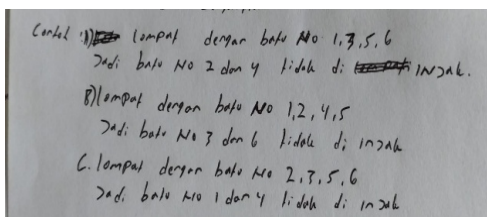 Contoh : A) lompat dengan batu No 1,3,5,6
Jadi batu No 2 dan 4 tidak di injak.
B) lompat dengan batu No 1,2,4,5
Jadi batu No 3 dan 6 tidak di injak
C. lompat dengan batu No 2,3,5,6
Jadi batu No 1 dan 4 tidak di injak